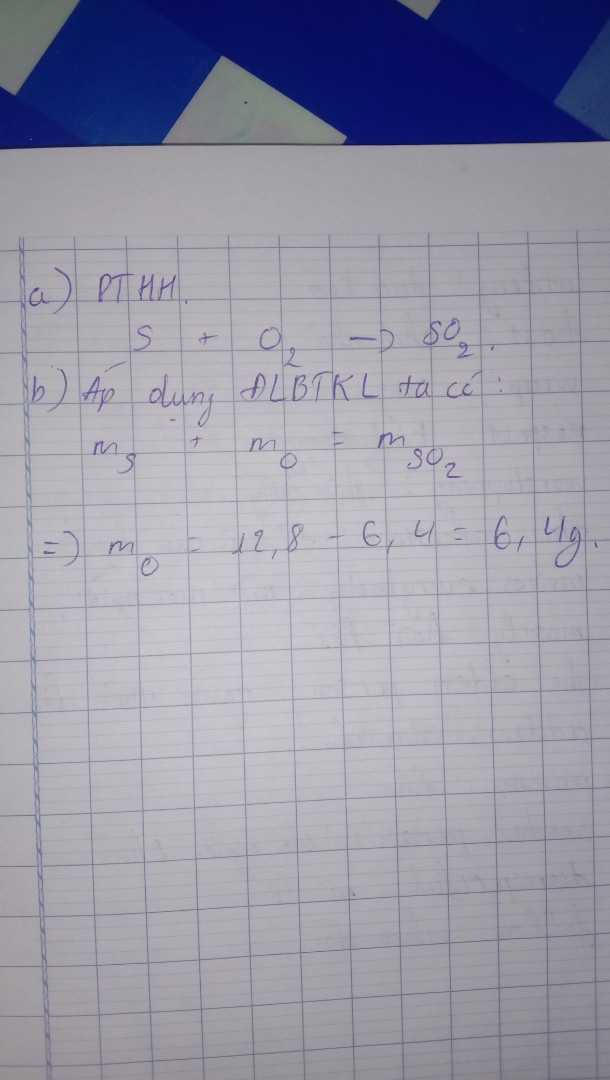 a) PTHH.
S + O₂ → SO₂.
b) Áp dụng ĐLBTKL ta có:
m_S + m_O = m_SO₂
=> m_O = 12,8 - 6,4 = 6,4g.